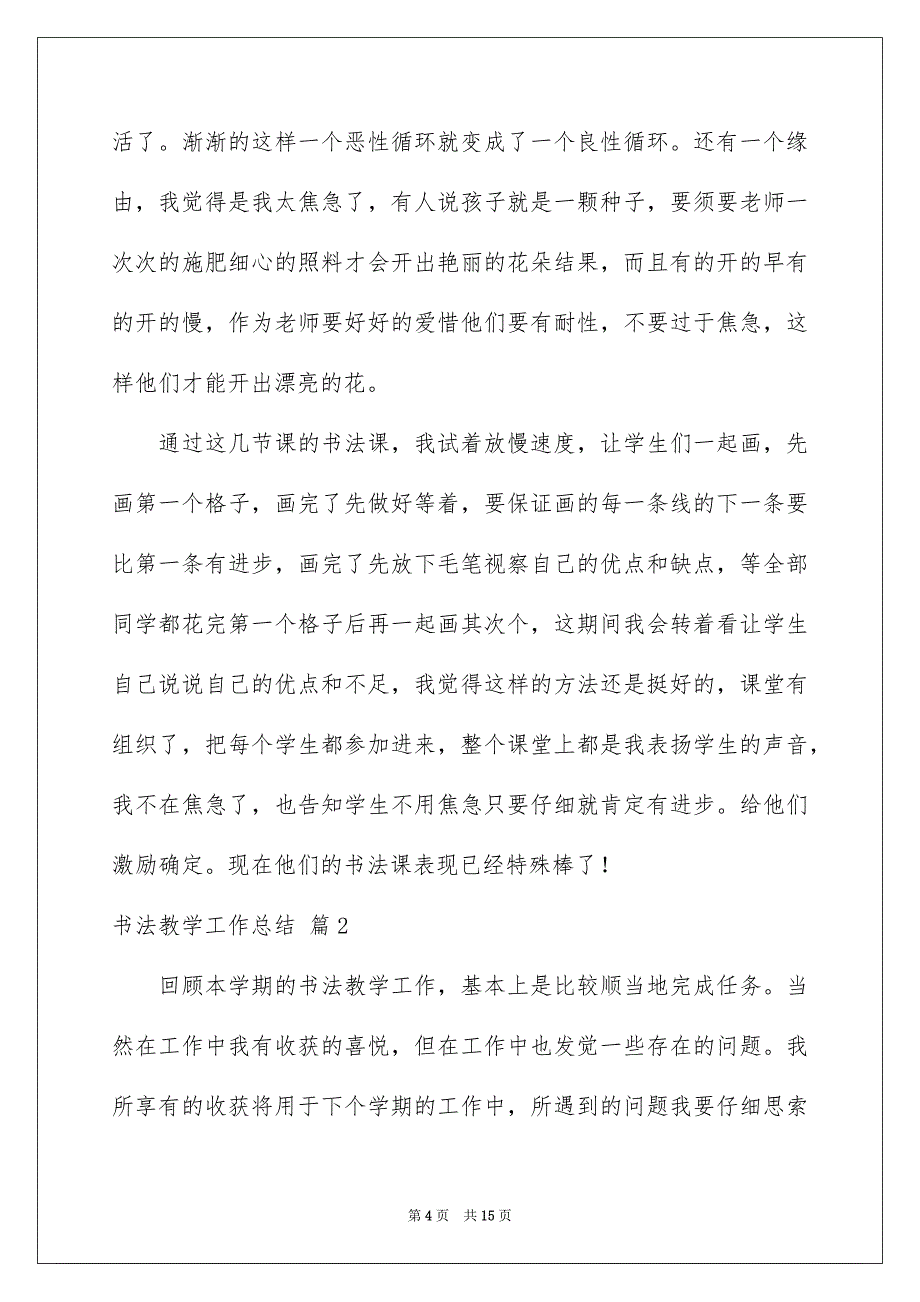 活了。渐渐的这样一个恶性循环就变成了一个良性循环。还有一个缘
由，我觉得是我太焦急了，有人说孩子就是一颗种子，要须要老师一
次次的施肥细心的照料才会开出艳丽的花朵结果，而且有的开的早有
的开的慢，作为老师要好好的爱惜他们要有耐性，不要过于焦急，这
样他们才能开出漂亮的花。
通过这几节课的书法课，我试着放慢速度，让学生们一起画，先
画第一个格子，画完了先做好等着，要保证画的每一条线的下一条要
比第一条有进步，画完了先放下毛笔视察自己的优点和缺点，等全部
同学都花完第一个格子后再一起画其次个，这期间我会转着看让学生
自己说说自己的优点和不足，我觉得这样的方法还是挺好的，课堂有
组织了，把每个学生都参加进来，整个课堂上都是我表扬学生的声音，
我不在焦急了，也告知学生不用焦急只要仔细就肯定有进步。给他们
激励确定。现在他们的书法课表现已经特殊棒了！
书法教学工作总结 篇2
回顾本学期的书法教学工作，基本上是比较顺当地完成任务。当
然在工作中我有收获的喜悦，但在工作中也发觉一些存在的问题。我
所享有的收获将用于下个学期的工作中，所遇到的问题我要仔细思索
第 4 页 共 15 页